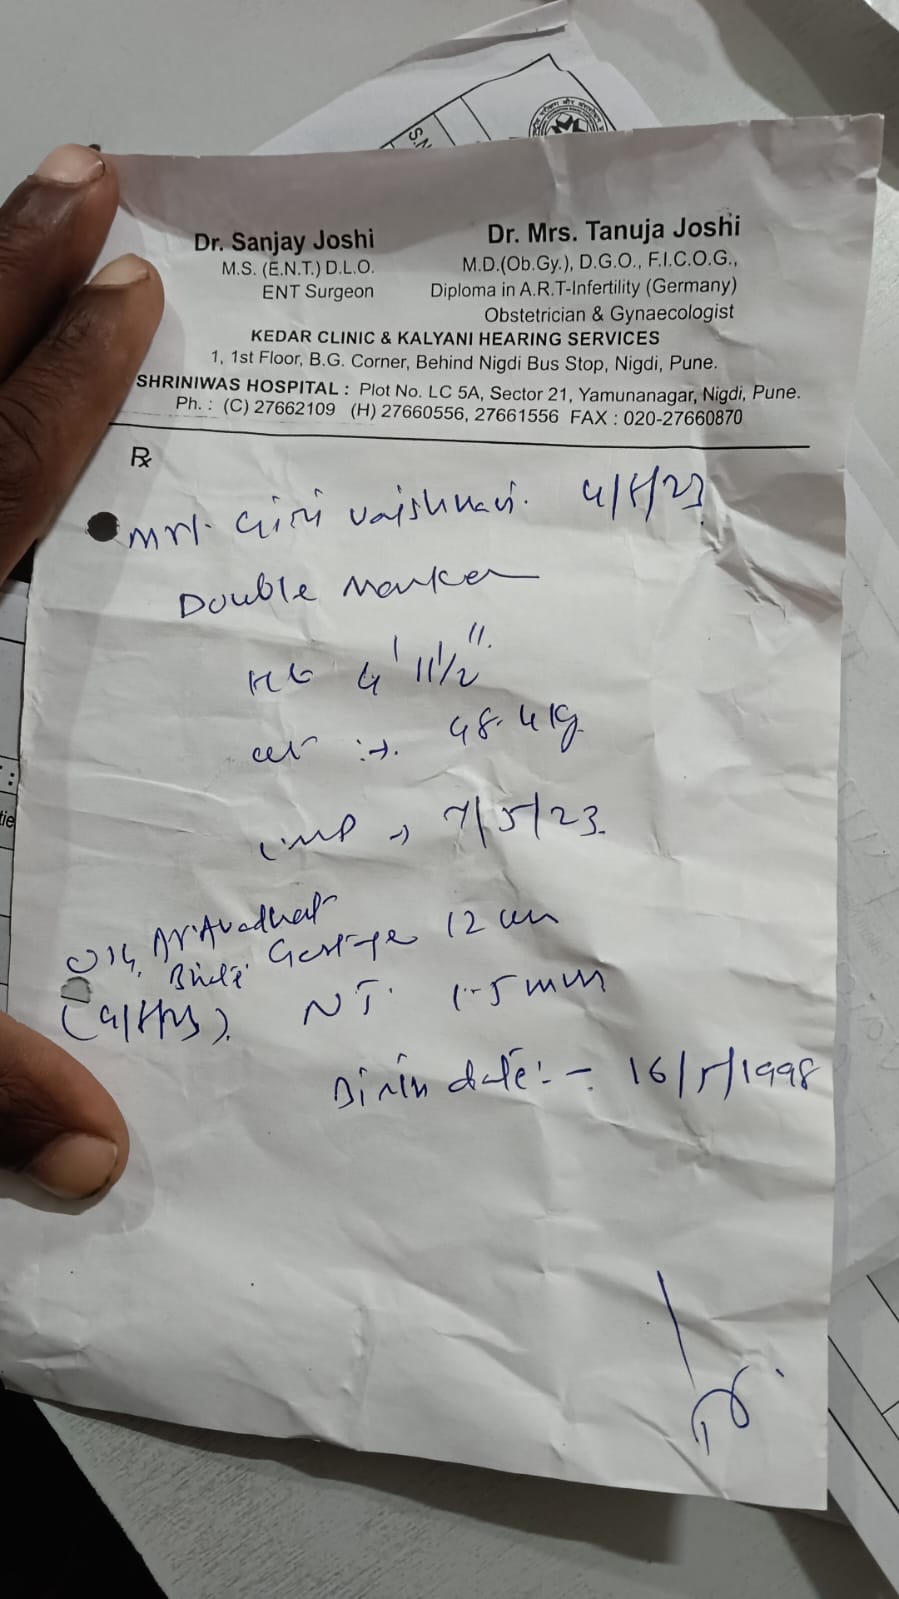 S.N
Dr. Sanjay Joshi
M.S. (E.N.T.) D.L.O.
ENT Surgeon
Dr. Mrs. Tanuja Joshi
M.D.(Ob.Gy.), D.G.O., F.I.C.O.G.,
Diploma in A.R.T-Infertility (Germany)
Obstetrician & Gynaecologist
KEDAR CLINIC & KALYANI HEARING SERVICES
1, 1st Floor, B.G. Corner, Behind Nigdi Bus Stop, Nigdi, Pune.
SHRINIWAS HOSPITAL : Plot No. LC 5A, Sector 21, Yamunanagar, Nigdi, Pune.
Ph. : (C) 27662109 (H) 27660556, 27661556 FAX : 020-27660870
℞
Mrs. Giri Vaishnavi.
Double Marker
Ht 4' 11 1/2".
wt :→. 48.4 kg
LMP → 7/5/23.
Gest age 12
NT. 1.5 mm
Birth date:- 16/5/1998